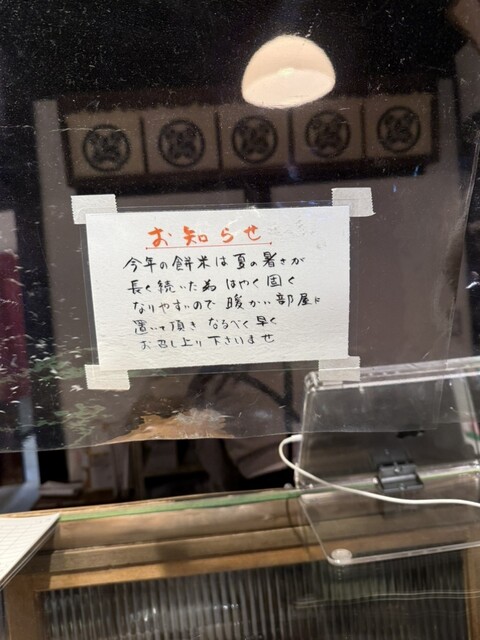 お知らせ
今年の餅米は夏の暑さが
長く続いた為 はやく固く
なりやすいので 暖かい部屋に
置いて頂き なるべく早く
お召し上り下さいませ